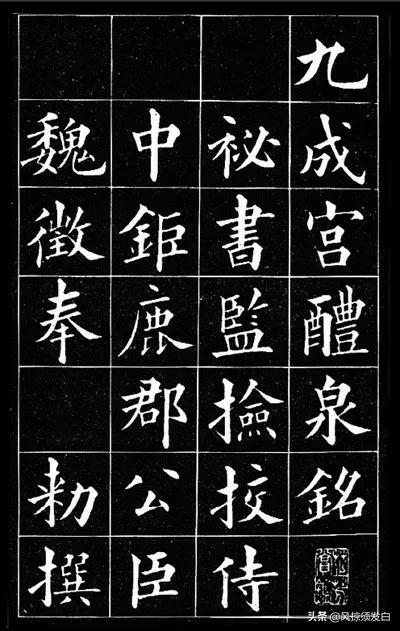 九成宫醴泉銘
祕書監撿挍侍
中鉅鹿郡公臣
魏徵奉勑撰
头条 @风掠须发白